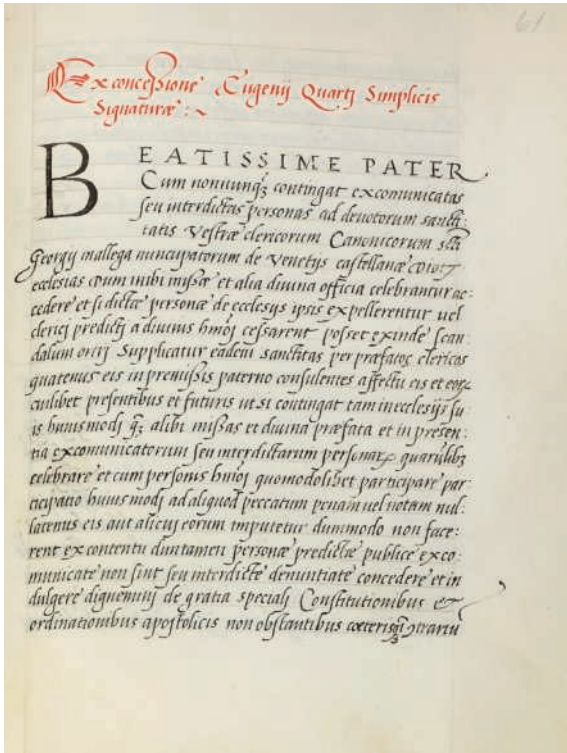 61
Ex concessione Eugenij Quartj Simplicis
Signaturæ :~
BEATISSIME PATER
Cum nonnunqꝫ contingat excomunicatas
seu interdictas personas ad deuotorum sancti:
tatis Vestræ clericorum Canonicorum scti
Georgij in allega nuncupatorum de Venetijs castellanæ
ecclesias dum inibi missæ et alia diuina officia celebrantur ac:
cedere et si dictæ personæ de ecclesijs ipsis expellerentur uel
clericj predictj a diuinis hmoj cessarent posset exinde scan:
dalum orirj Supplicatur eadem sanctitas per præfatos clericos
quatenus eis in premissis paterno consulentes affectu eis et eoꝝ
cuilibet presentibus et futuris ut si contingat tam in ecclesijs su
is huiusmodj qꝫ alibi missas et diuina præfata et in presen:
tia excomunicatorum seu interdictarum personaꝝ quarumlibꝫ
celebrare et cum personis hmoj quomodolibet participare par:
ticipatio huiusmodj ad aliquod peccatum penam uel notam nul:
latenus eis aut alicuj eorum imputetur dummodo non face:
rent ex contentu duntamen personæ predictæ publice exco:
municate non sint seu interdicte denuntiate concedere et in
dulgere dignemini de gratia specialj Constitutionibus &
ordinationibus apostolicis non obstantibus cæterisqꝫ ɔtrariu